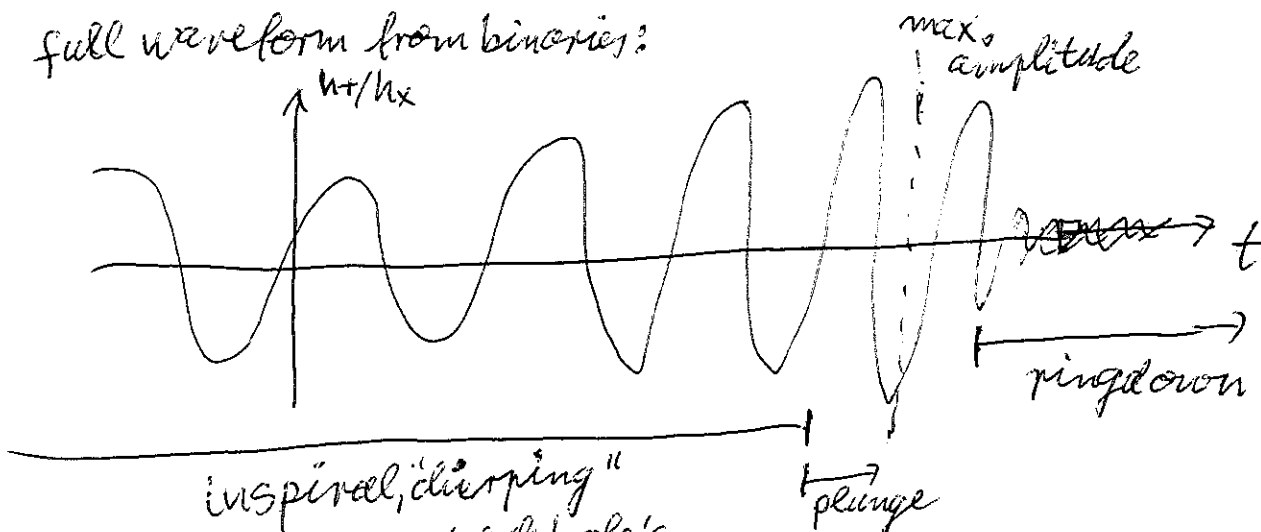 full waveform from binaries:
max.
amplitude
h+/hx
t
ringdown
inspiral, "chirping"
plunge